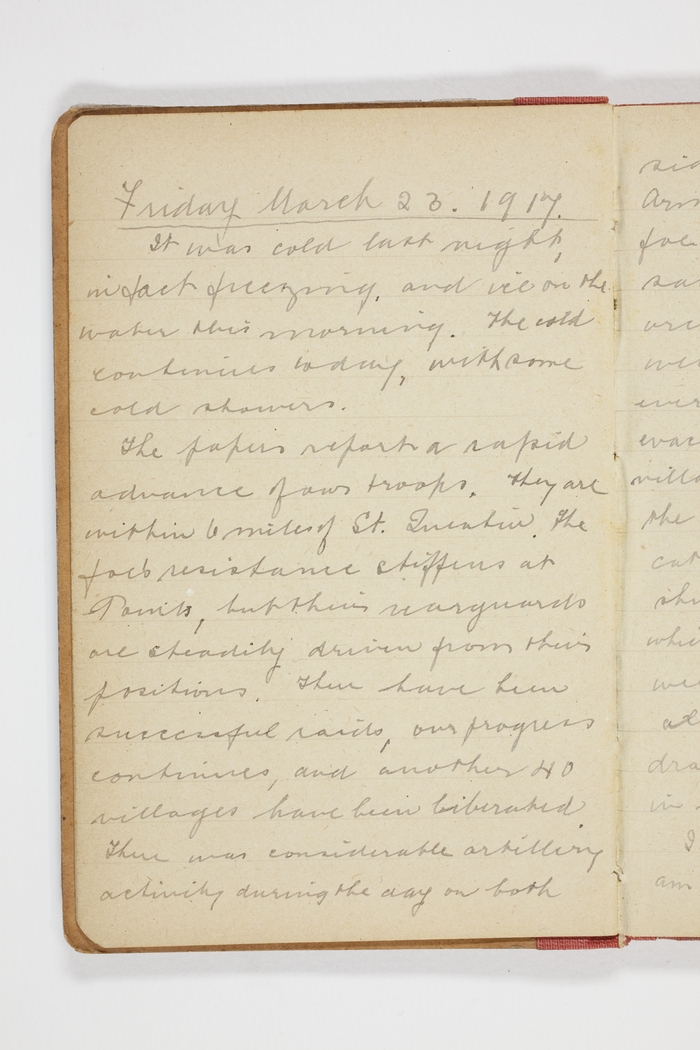 Friday March 23. 1917.
It was cold last night,
in fact freezing, and ice on the
water this morning. The cold
continues today, with some
cold showers.
The papers report a rapid
advance of our troops. They are
within 6 miles of St. Quentin. The
foe's resistance stiffens at
Points, but their rearguards
are steadily driven from their
positions. There have been
successful raids, our progress
continues, and another 40
villages have been liberated
There was considerable artillery
activity during the day on both
the
in
I
am